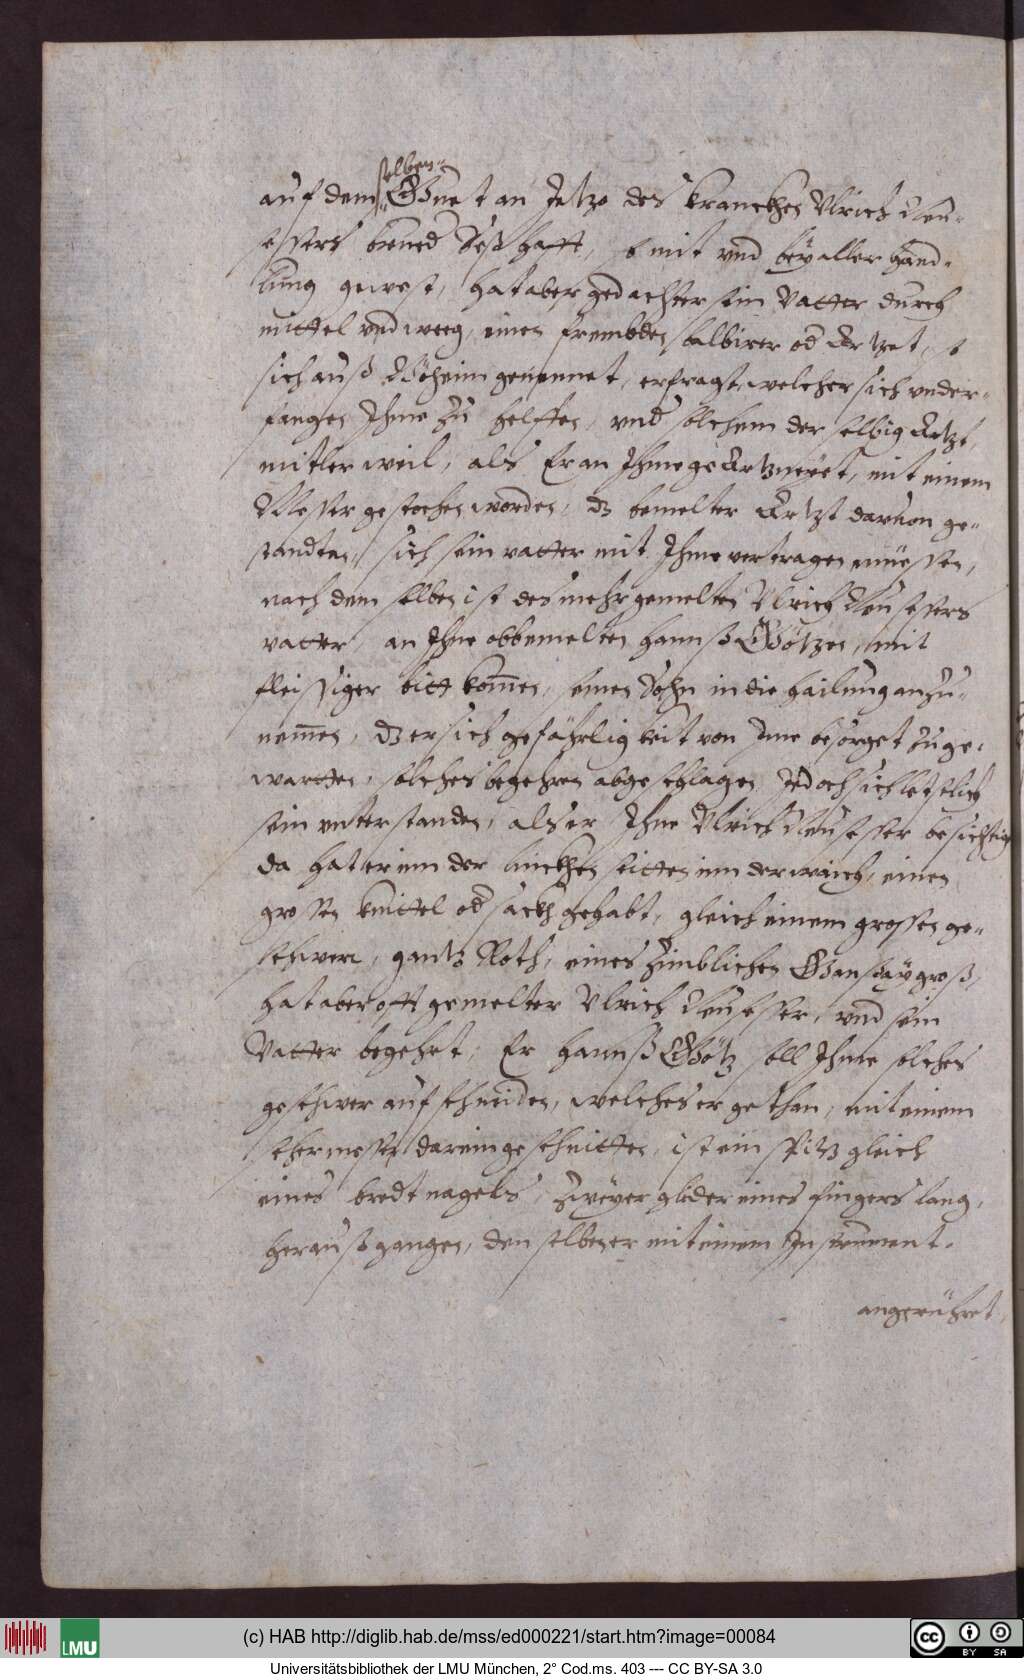 selben
auf dem Guet an Jetzo des kranckhen Ulrich Neu-
essers brued Seßhafft, so mit und bey aller hand-
lung gewest, hat aber gedachter sein Vatter durch
mittel und weeg, einen frembden balbirer od Artzet, so
sich auß Böheim genennet, erfragt, welcher sich under-
fangen Ihme zu helffen, und solchem der selbig Artzt,
mitler weil, als Er an Ihme geArtzneyet, mit einem
Messer gestochen worden, dz bemelter Artzt darvon ge-
standten, sich sein vatter mit Ihme vertragen müessen,
nach dem selben ist des mehrgemelten Ulrich Neusessers
vatter, an Ihne obbemelten hannß Götzen, mit
fleissiger bitt komen, seinen Sohn in die hailung anzu-
nemen, dz er sich gefährligkeit von Ime besorget zuge-
wartten, solches begehren abgeschlagen, Jedoch sich letstlich
sein unterstanden, als er Ihne Ulrich Neusesser besichtigt
da hat er inn der linckhen seitten inn der waich, einen
grossen knittel od sackh gehabt, gleich einem grossen ge-
schwer, gantz Roth, eines zimblichen Gansay groß,
hat aber offt gemelter Ulrich Neusesser, und sein
Vatter begehrt, Er hannß Götz soll Ihme solches
geschwer auf schneiden, welches er gethan, mit einem
schermesser darein geschnitten, ist ein spitz gleich
eines bredtnagels, zweyer glider eines fingers lang,
heraußgangen, den selben er mit einem Instrument.
angerühret,
(c) HAB http://diglib.hab.de/mss/ed000221/start.htm?image=00084
LMU
cc BY SA
Universitätsbibliothek der LMU München, 2° Cod.ms. 403 --- CC BY-SA 3.0